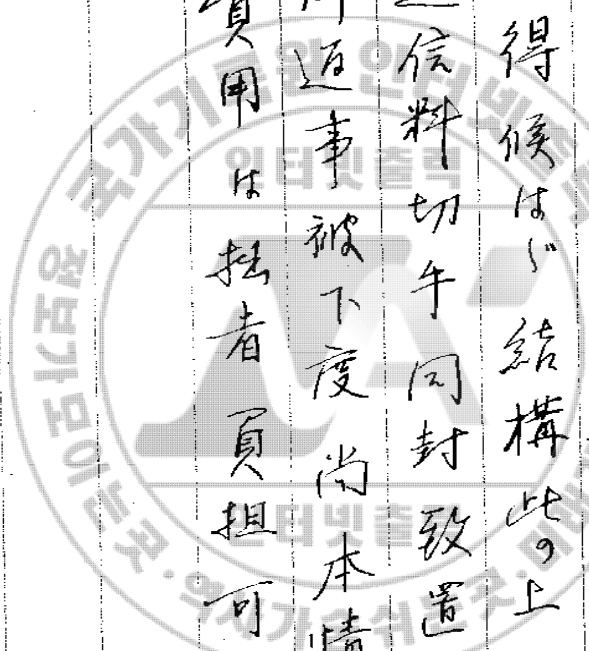 得候はゞ結構此の上
信料切手同封致置
返事被下度尚本情
費用は拙者負担可
국가기록원
인터넷출력
인터넷출력